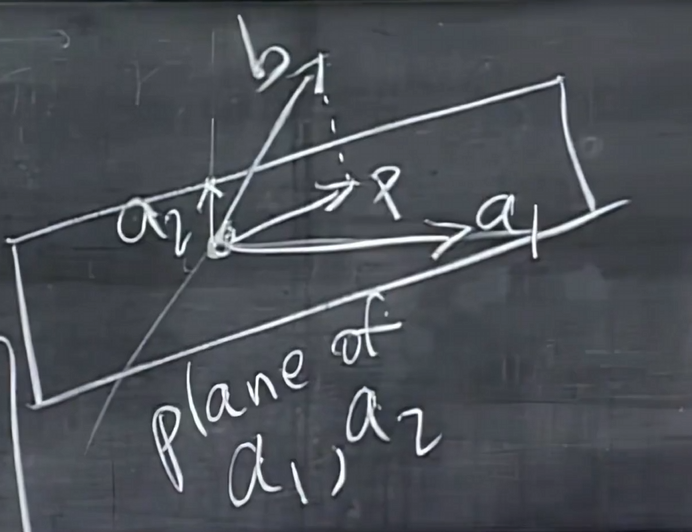 b
a2
p
a1
plane of
a1, a2